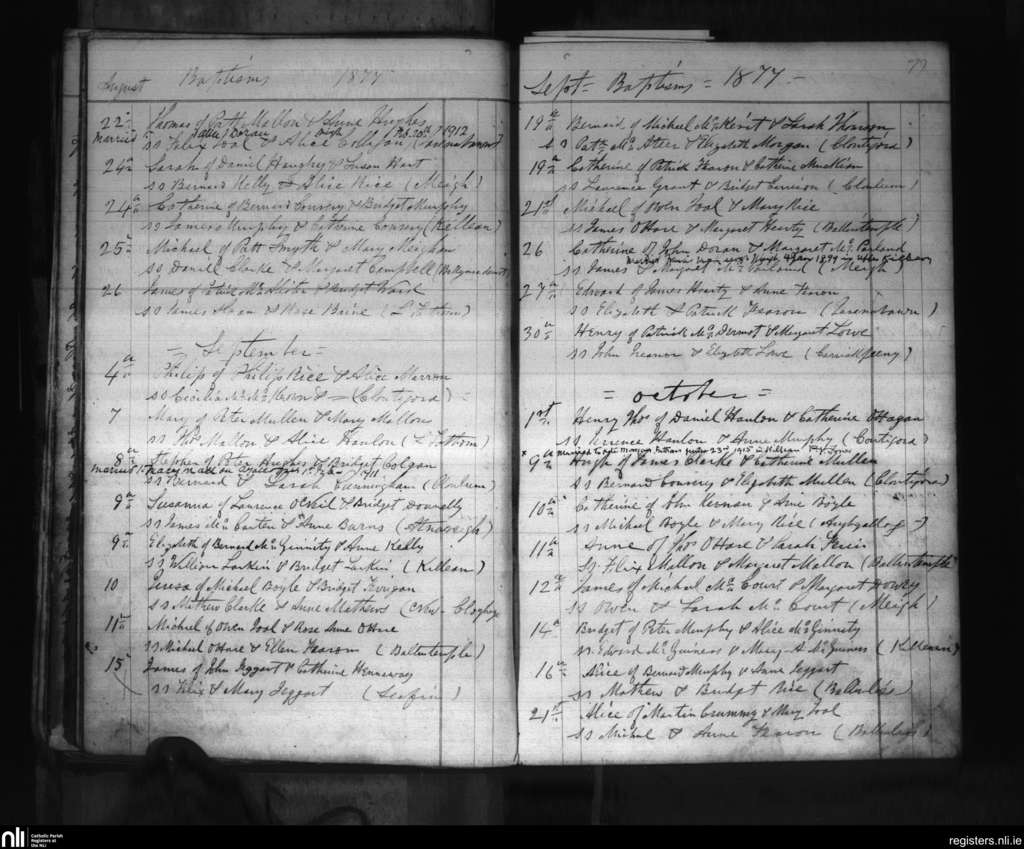 August Baptisms 1877
22 Thomas of Patt Mallon & Anne Hughes
married Patk J Doran Feb. 20th 1912
ss Felix Tool & Alice
24th Sarah of Daniel Heughy & Susan Hart
ss Bernard Kelly & Alice Rice (Meigh)
24th Catherine of Bernard Convery & Bridget Murphy
ss James Murphy & Catherine Convery (Killean)
25th Michael of Patt Smyth & Mary Meighan
ss Daniel Clarke & Margaret Campbell
26 James of & Bridget Ward
ss James & Rose Beirne
= September =
4th Philip of Philip Rice & Alice Marron
ss Cecilia McKeown & = (Clontifora)
7 Mary of Peter Mullen & Mary Mallon
ss Thos Mallon & Alice Hanlon
8th Stephen of Peter Hughes & Bridget Colgan
married 1911
ss Bernard & Sarah Cunningham (Clonlum)
9th Susanna of Laurence O'Neil & Bridget Donnelly
ss James McCarten & Anne Burns
9th Elizabeth of Bernard McGinnity & Anne Kelly
ss William Larkin & Bridget Larkin (Killean)
10 of Michael Boyle & Bridget Finigan
ss Mathew Clarke & Anne Mathews
11th Michael of Owen Tool & Rose Anne O'Hare
ss Michael O'Hare & Ellen Fearon (Ballentemple)
15 James of John Teggart & Catherine Hennaway
ss Felix & Mary Teggart (Seafin)
77
Sept = Baptisms = 1877 =
19th Bernard of Michael & Sarah Thomson
ss Patt McAteer & Elizabeth Morgan (Clontifora)
19th Catherine of Patrick Fearon & Catherine
ss Laurence Grant & Bridget (Clonlum)
21st Michael of Owen Tool & Mary Rice
ss James O'Hare & Margaret Hearty (Ballentemple)
26 Catherine of John Doran & Margaret McParland
married 1899 in
ss James & Margaret McParland (Meigh)
27th Edward of James Hearty & Anne Fearon
ss Elizabeth & Patrick Fearon
30th Henry of Patrick McDermot & Margaret Lowe
ss John Treanor & Elizabeth Lowe
= October =
1st Henry Thos of Daniel Hanlon & Catherine O'Hagan
ss Terence Hanlon & Anne Murphy (Clontifora)
x married to 23rd 1915 in Killean
9th Hugh of James Clarke & Catherine Mullen
ss Bernard Convery & Elizabeth Mullen (Clontifora)
10th Catherine of John Kernan & Anne Boyle
ss Michael Boyle & Mary Rice
11th Anne of Thos O'Hare & Sarah
ss Felix Mallon & Margaret Mallon (Ballentemple)
12th James of Michael McCourt & Margaret Dowey
ss Owen & Sarah McCourt (Meigh)
14th Bridget of Peter Murphy & Alice McGinnity
ss Edward McGuiness & Mary A McGuiness
16th Alice of Bernard Murphy & Anne Teggart
ss Mathew & Bridget Rice
21st Alice of Martin Crummy & Mary Tool
ss Michael & Anne Fearon
nli Catholic Parish
Registers at
the NLI
registers.nli.ie